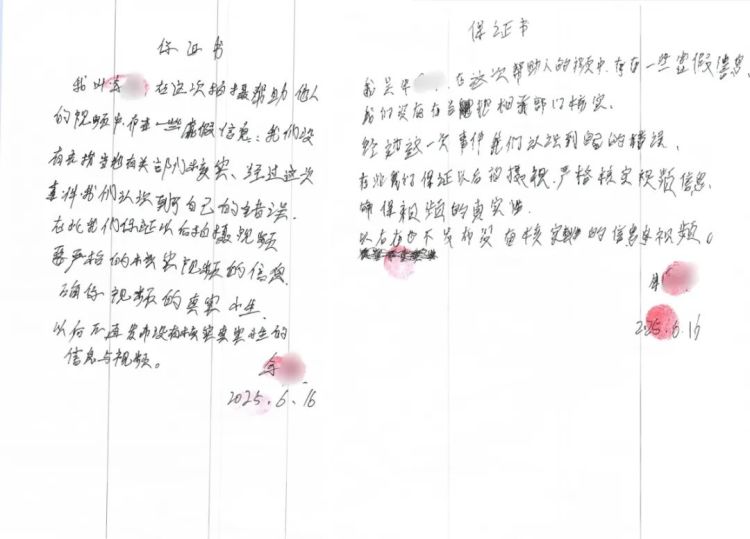 保证书
我叫余 在这次拍摄帮助他人
的视频中存在一些虚假信息,我们没
有在当地有关部门核实、经过这次
事件我们认识到了自己的错误.
在此我们保证以后拍摄视频
要严格的核实视频的信息.
确保视频的真实性.
以后不再发布没有核实真实性的
信息与视频。
余
2025.6.16
保证书
我是 ,在这次帮助人的视频中,存在一些虚假信息、
我们没有在当地相关部门核实.
经过这一次事件我们认识到 的错误、
在此我们保证以后拍摄视 .严格核实视频信息.
确保视频的真实性.
以后在也不发布没有核实 的信息和视频。
2025.6.16